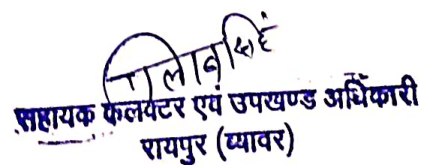 गुलाब सिंह
सहायक कलक्टर एवं उपखण्ड अधिकारी
रायपुर (ब्यावर)